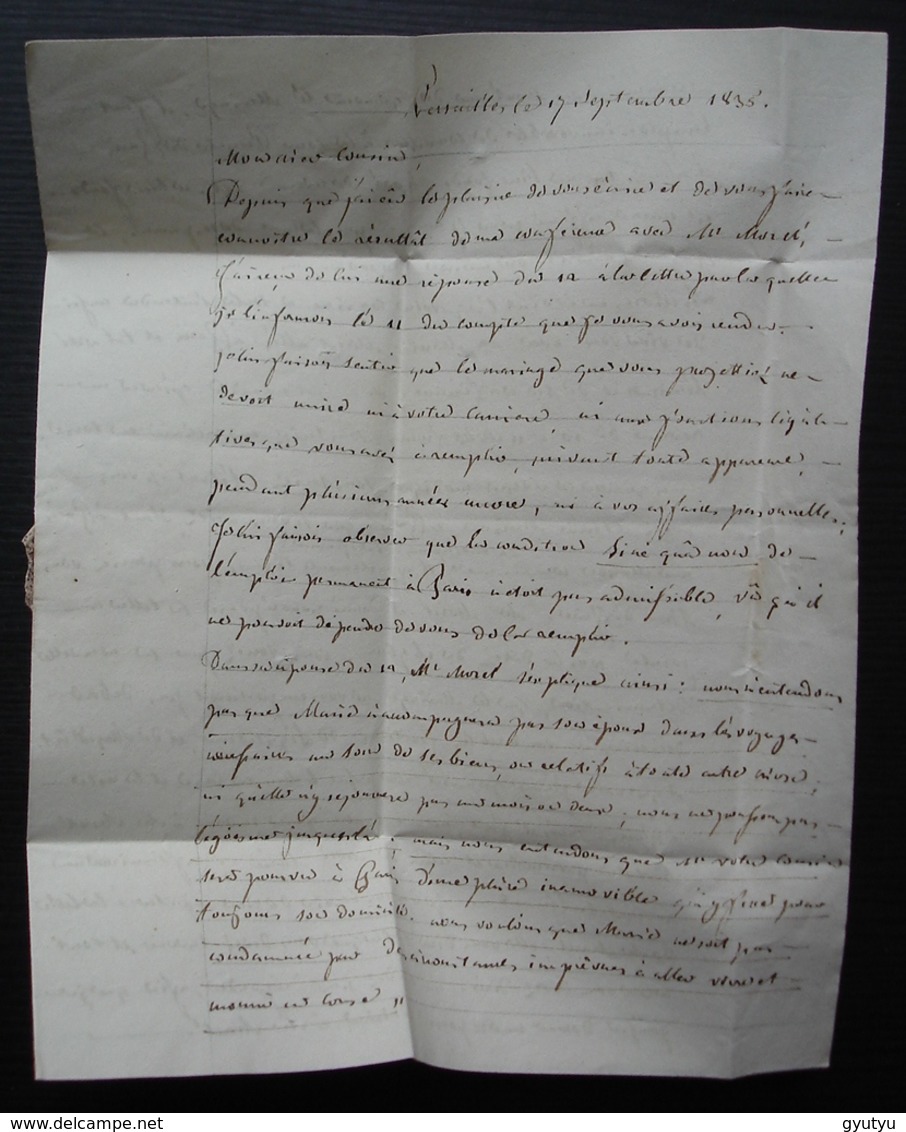 Versailles le 17 Septembre 1835.
Mon cher Cousin,
Depuis que j'ai eû le plaisir de vous écrire et de vous faire
connoître le résultât de ma conférence avec Mr Morel,
j'ai reçu de lui une réponse du 12 à la lettre par la quelle
je l'informois le 11 du compte que je vous avois rendu.
je lui faisois sentir que le mariage que vous projettiez ne
devoit nuire ni à votre carriere, ni aux fonctions législa-
tives que vous avés à remplir, suivant toute apparence,
pendant plusieurs années encore, ni à vos affaires personnelles;
Je lui faisois observer que la condition Siné quâ non de
l'emploi permanent à Paris n'étoit pas admissible, vû qu'il
ne pouvoit dépendre de vous de la remplir.
Dans sa réponse du 12, Mr Morel s'explique ainsi: nous n'entendons
pas que Marie n'accompagnera pas son époux dans les voyages
nécessaires au soin de ses biens, ou relatifs à toute autre cause,
ni qu'elle n'y séjournera pas un mois ou deux; nous ne poussons pas
l'égoïsme jusques là; mais nous entendons que Mr votre cousin
sera pourvu à Paris d'une place inamovible qui y fixera pour
toujours son domicile. nous voulons que Marie ne soit pas
condamnée par des circonstances imprévues à aller vivre et
mourir en Corse "
gyutyu